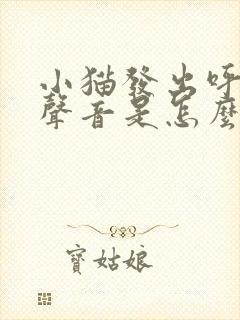 小猫發出呼
聲音是怎麼
寶姑娘